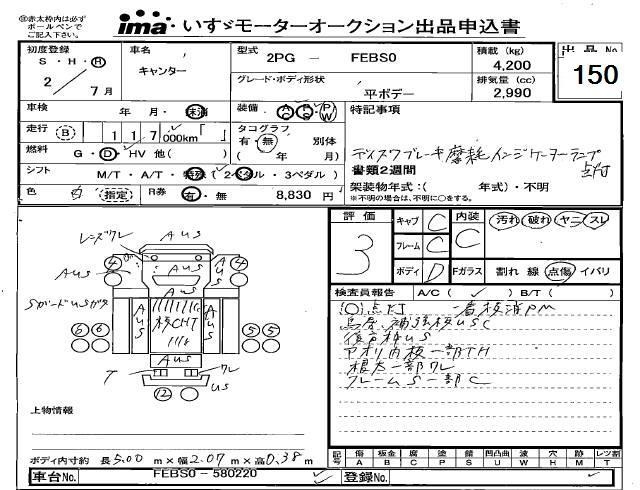 ㊟赤太枠内は必ず
ボールペンで
ご記入下さい。
ima いすゞモーターオークション出品申込書
出品No
150
初度登録
S・H・Ⓡ
2年 7月
車名
キャンター
型式
2PG － FEBS0
グレード・ボディ形状
平ボデー
積載 (kg)
4,200
排気量 (cc)
2,990
車検 年 月・抹消
装備 AC PS PW
特記事項
走行 B 117,000km「 」
タコグラフ 別体
有・無 ( 年 月)
ディスクブレーキ摩耗インジケーターランプ
点灯
燃料 G・D・HV 他( )
書類2週間
シフト M/T・A/T・特殊 ( 2ペダル・3ペダル )
架装物年式：( 年式)・不明
※不明の場合は、不明に○をする。
色 白 指定
R券 有・無 8,830 円
評価
3
キャブ C
フレーム C
ボディ D
内装 C
汚れ 破れ ヤニ スレ
Fガラス 割れ 線 点傷 イバリ
検査員報告 A/C ( ✓ ) B/T ( )
点灯 看板消PM
鳥居、補強板USC
後戸枠US
アオリ内板一部TH
根太一部ワレ
フレームS一部C
レンズワレ
AUS
4
4
AUS
AUS
SガードUSガタ
AUS
AUS
板CHT
6 6
5 5
AUS
T
ワレ
US
12
上物情報
ボディ内寸約 長5.00 m×幅2.07 m×高0.38 m
記号 傷A 板金B 腐C 塗P 錆S 凹凸曲U 波W 穴H 跡M レンズ割T
車台No. FEBS0－580220
登録No.